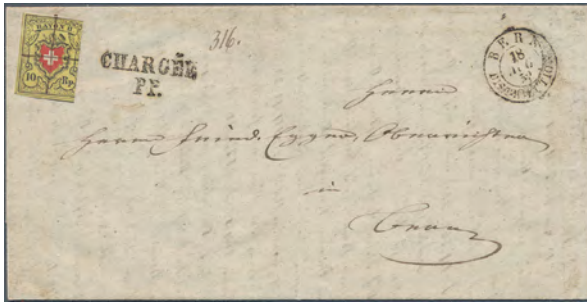 RAYON II
10 Rp.
316.
CHARGÉE
P.P.
BERN
18
Herrn
Herrn Fried. Egger, Oberrichter
in
Bern